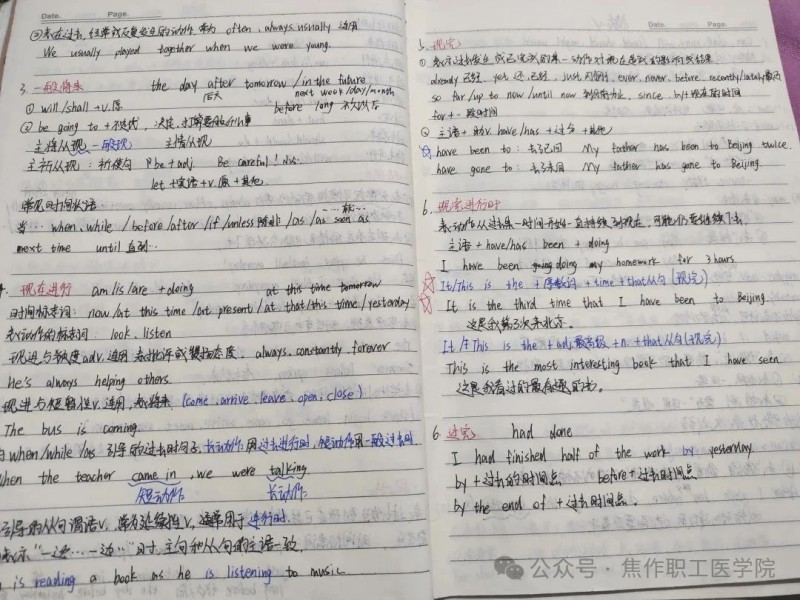 Date. Page.
②表示过去,经常或反复发生的动作,常与 often, always, usually 连用
We usually played together when we were young.
3. 一般将来 the day after tomorrow / in the future
后天 next week/day/month
① will/shall + v.原 before long 不久以后
② be going to + 不定式, 决定、打算要做什么事
主将从现 一般现 主情从现
主祈从现: 祈使句 be + adj. Be careful!
let + 宾语 + v.原 + 其他.
常见时间状语
当… when, while / before / after / if / unless 除非 / as / as soon as
一…就…
next time until 直到…
现在进行 am/is/are + doing at this time tomorrow
时间标志词: now / at this time / at present / at that/this time / yesterday
表动作的标志词: look, listen
现进与频度adv.连用,表批评或赞扬态度. always, constantly, forever
He's always helping others.
现进与短暂性v.连用,表将来 (come, arrive, leave, open, close)
The bus is coming.
when/while/as 引导的过去时句子,长动作用过去进行时,短动作用一般过去时
When the teacher came in, we were talking.
短动作 长动作
引导的从句谓语v.常为延续性v,通常用于进行时.
表示"一边…一边…"时,主句和从句的主语一致.
is reading a book as he is listening to music
Date. Page.
5. 现完
① 表示过去发生或已完成的某一动作对现在造成的影响或结果
already 已经, yet 还,已经, just, ever, never, before, recently/lately 最近
so far / up to now / until now 到目前为止, since + 过去的时间
for + 一段时间
② 主语 + have/has + 过分 + 其他
have been to: 去已回 My father has been to Beijing twice.
have gone to: 去了未回 My father has gone to Beijing.
6. 现完进行时
表动作从过去某一时间开始一直持续到现在,可能仍要继续下去.
主语 + have/has been + doing
I have been doing my homework for 3 hours.
It/This is the + 序数词 + time + that从句(现完)
It is the third time that I have been to Beijing.
这是我第3次来北京.
It/This is the + adj.最高级 + n. + that从句(现完)
This is the most interesting book that I have seen
这是我看过的最有趣的书.
6. 过完 had done
I had finished half of the work by yesterday.
by + 过去的时间点 before + 过去时间点
by the end of + 过去时间点.
公众号 · 焦作职工医学院